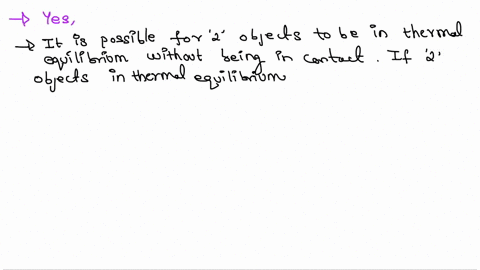 → Yes,
→ It is possible for '2' objects to be in thermal
equilibrium without being in contact. If '2'
objects in thermal equilibrium